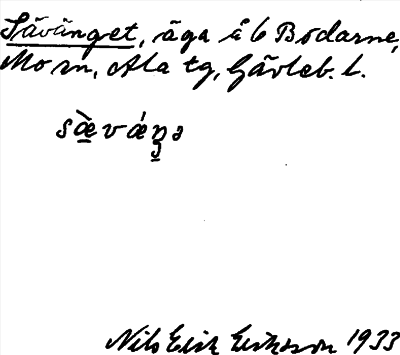 Sävänget, äga å 6 Bodarne,
Mo sn, Ala tg, Gävleb. l.
sæ̀väŋə
Nils Eric Eriksson 1933